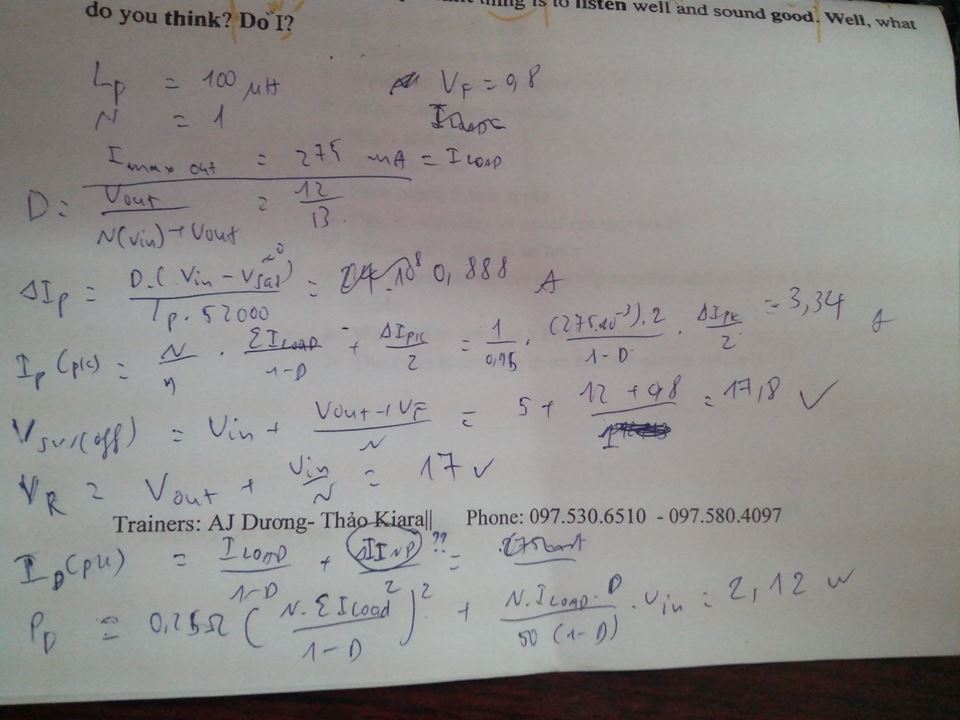 thing is to listen well and sound good. Well, what
do you think? Do I?
Lp = 100 μH VF = 0,8
N = 1
I max out = 275 mA = I LOAD
D = Vout / N(Vin) + Vout = 12 / 13
ΔIp = D.(Vin - Vsat) ≈0 / Lp . 52000 = 0,888 A
Ip(pk) = N / η . ΣILOAD / 1-D + ΔIPK / 2 = 1 / 0,95 . (275.10⁻³).2 / 1-D . ΔIPK / 2 = 3,34 A
VSW(off) = Vin + Vout + VF / N = 5 + 12 + 0,8 / 1 = 17,8 V
VR = Vout + Vin / N = 17 V
Trainers: AJ Dương- Thảo Kiara|| Phone: 097.530.6510 - 097.580.4097
ID(pk) = ILOAD / 1-D + ΔIINP / 2 ?? =
PD = 0,25Ω ( N.ΣILoad / 1-D )² + N.ILOAD.D / 50 (1-D) . Vin = 2,12 W